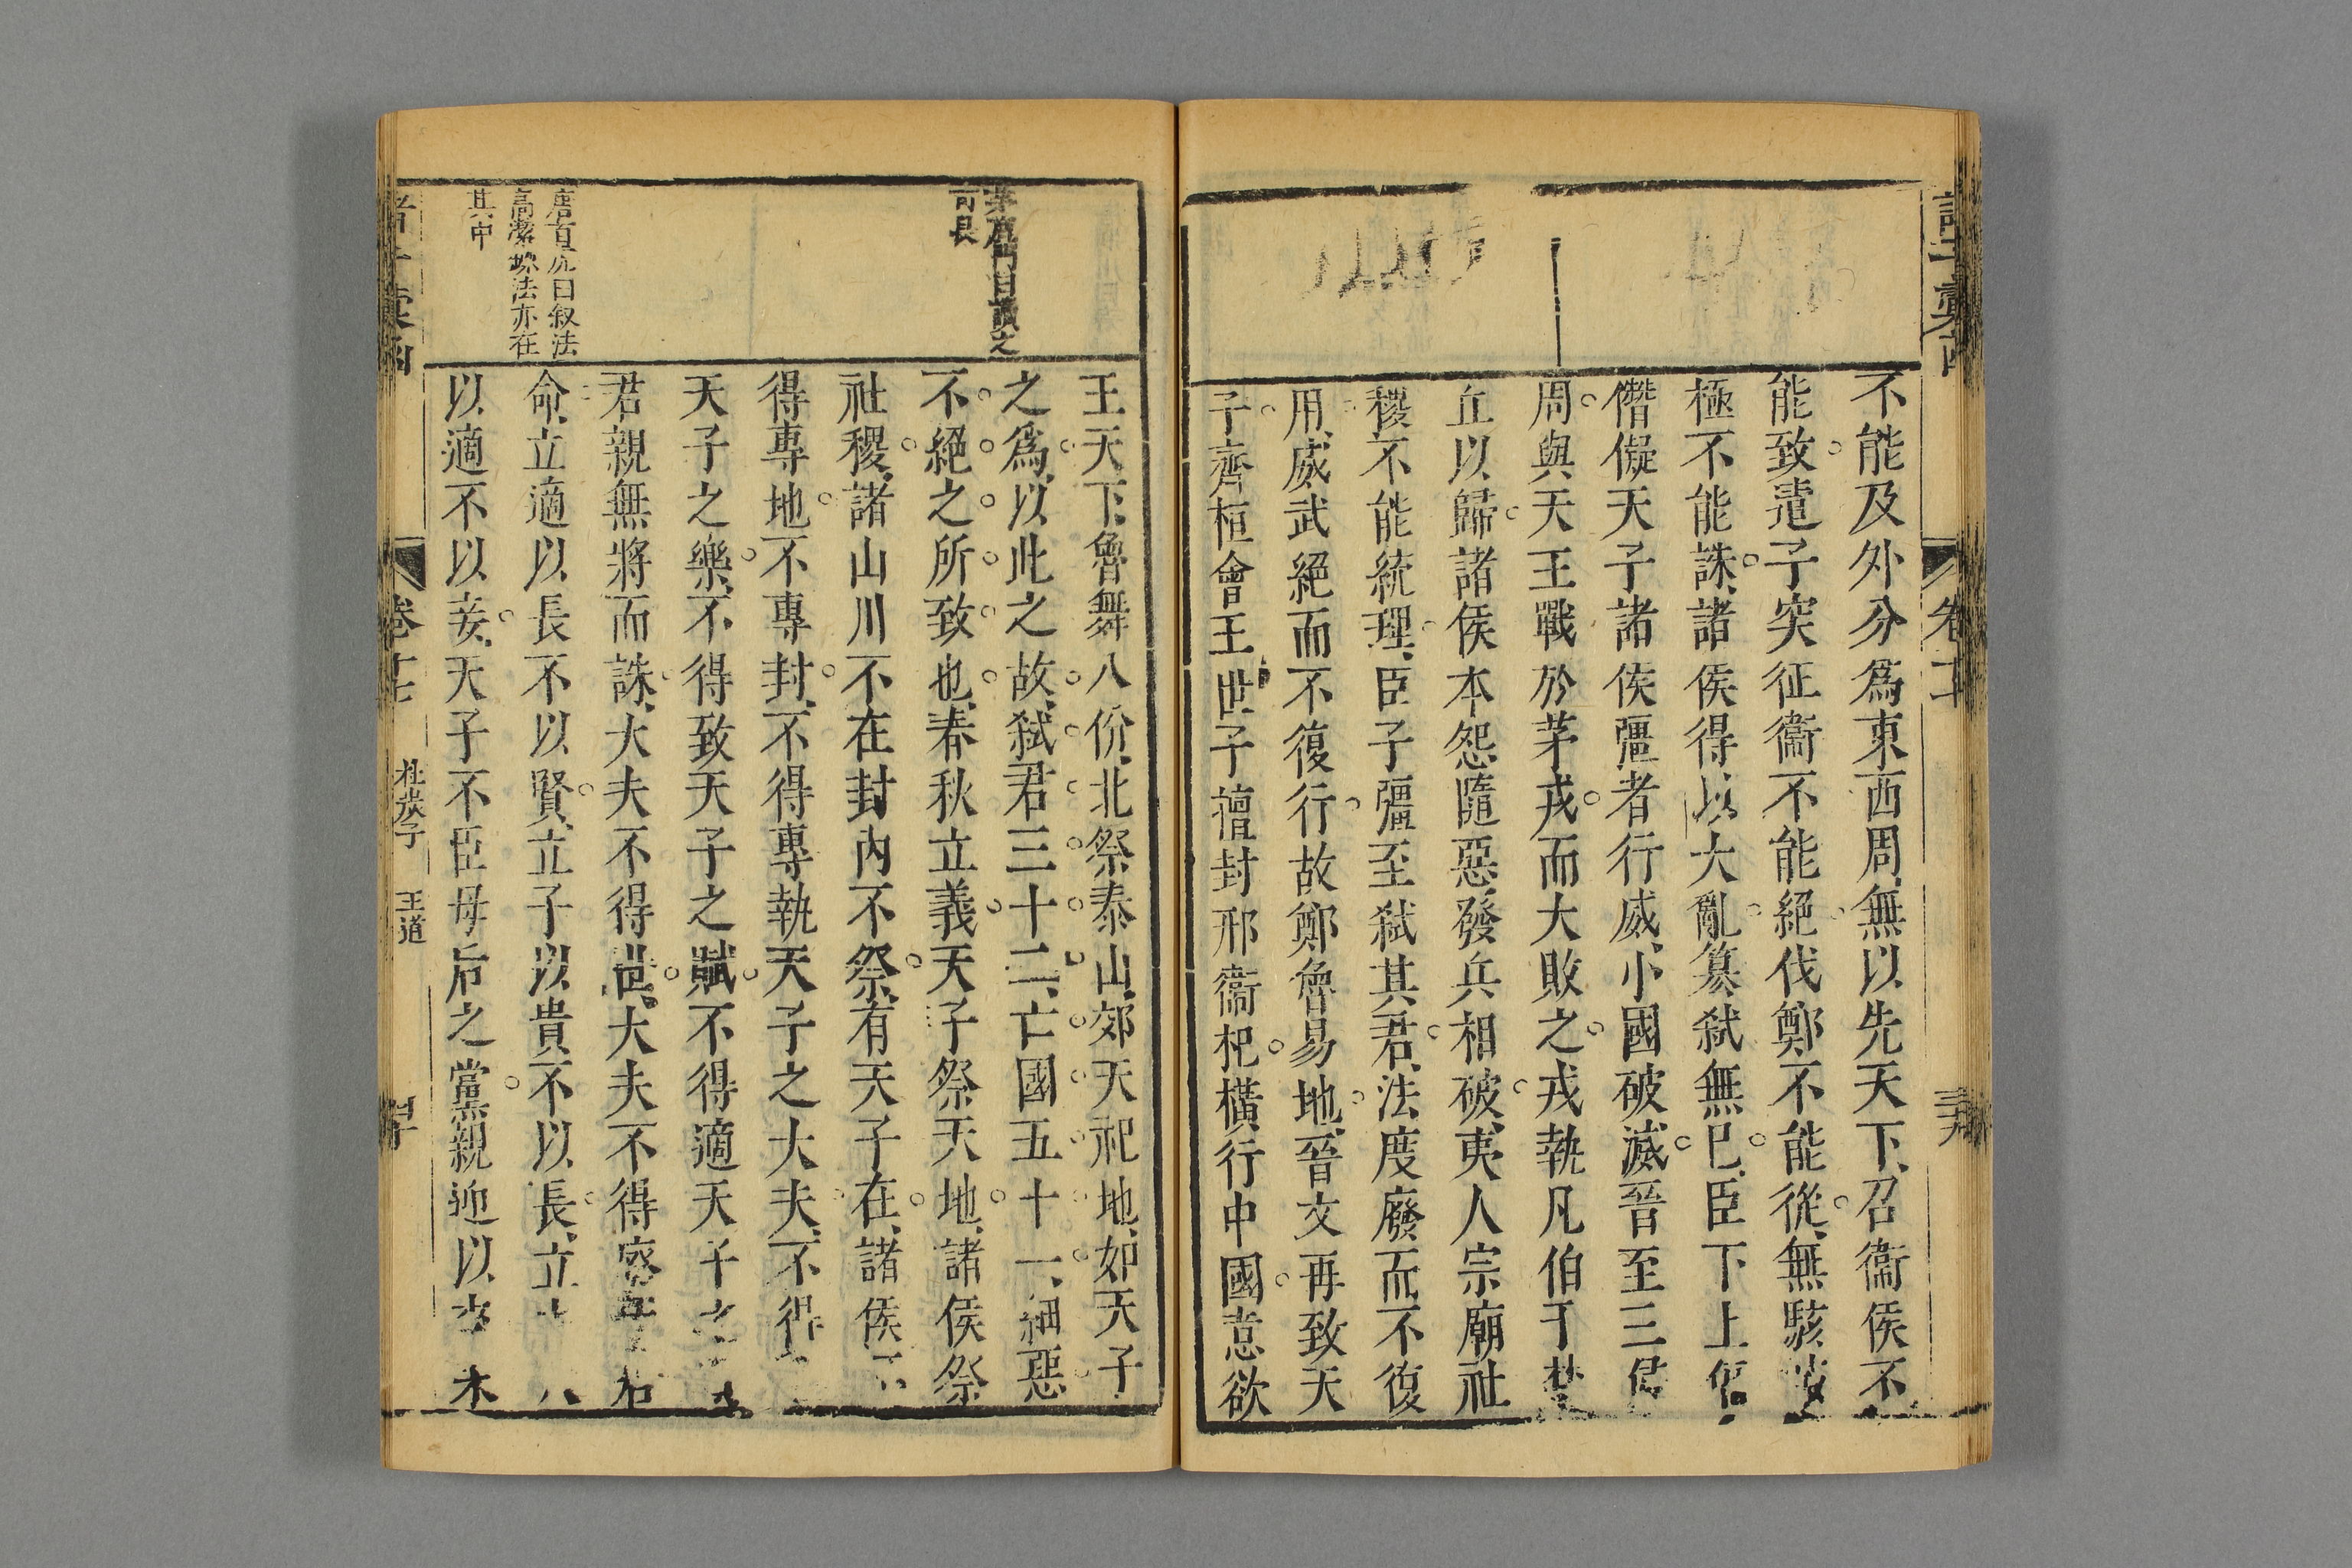 不能及外分爲東西周無以先天下召衞侯不
能致遣子突征衞不能絕伐鄭不能從無駭
極不能誅諸侯得以大亂篡弑無已臣下上
僭儗天子諸侯彊者行威小國破滅晉至三侵
周與天王戰於茅戎而大敗之戎執凡伯于楚
丘以歸諸侯本怨隨惡發兵相破夷人宗廟社
稷不能統理臣子彊至弑其君法度廢而不復
用威武絕而不復行故鄭魯易地晉文再致天
子齊桓會王世子擅封邢衞杞橫行中國意欲
王天下魯舞八佾北祭泰山郊天祀地如天子
之爲以此之故弑君三十二亡國五十一細惡
不絕之所致也春秋立義天子祭天地諸侯祭
社稷諸山川不在封內不祭有天子在諸侯不
得專地不專封不得專執天子之大夫不得
天子之樂不得致天子之賦不得適天子之
君親無將而誅大夫不得世大夫不得
命立適以長不以賢立子以貴不以長立
以適不以妾天子不臣母后之黨親迎以
唐首尤曰叙法
高潔煉法亦在
其中
卷十七
杜茨子
王道